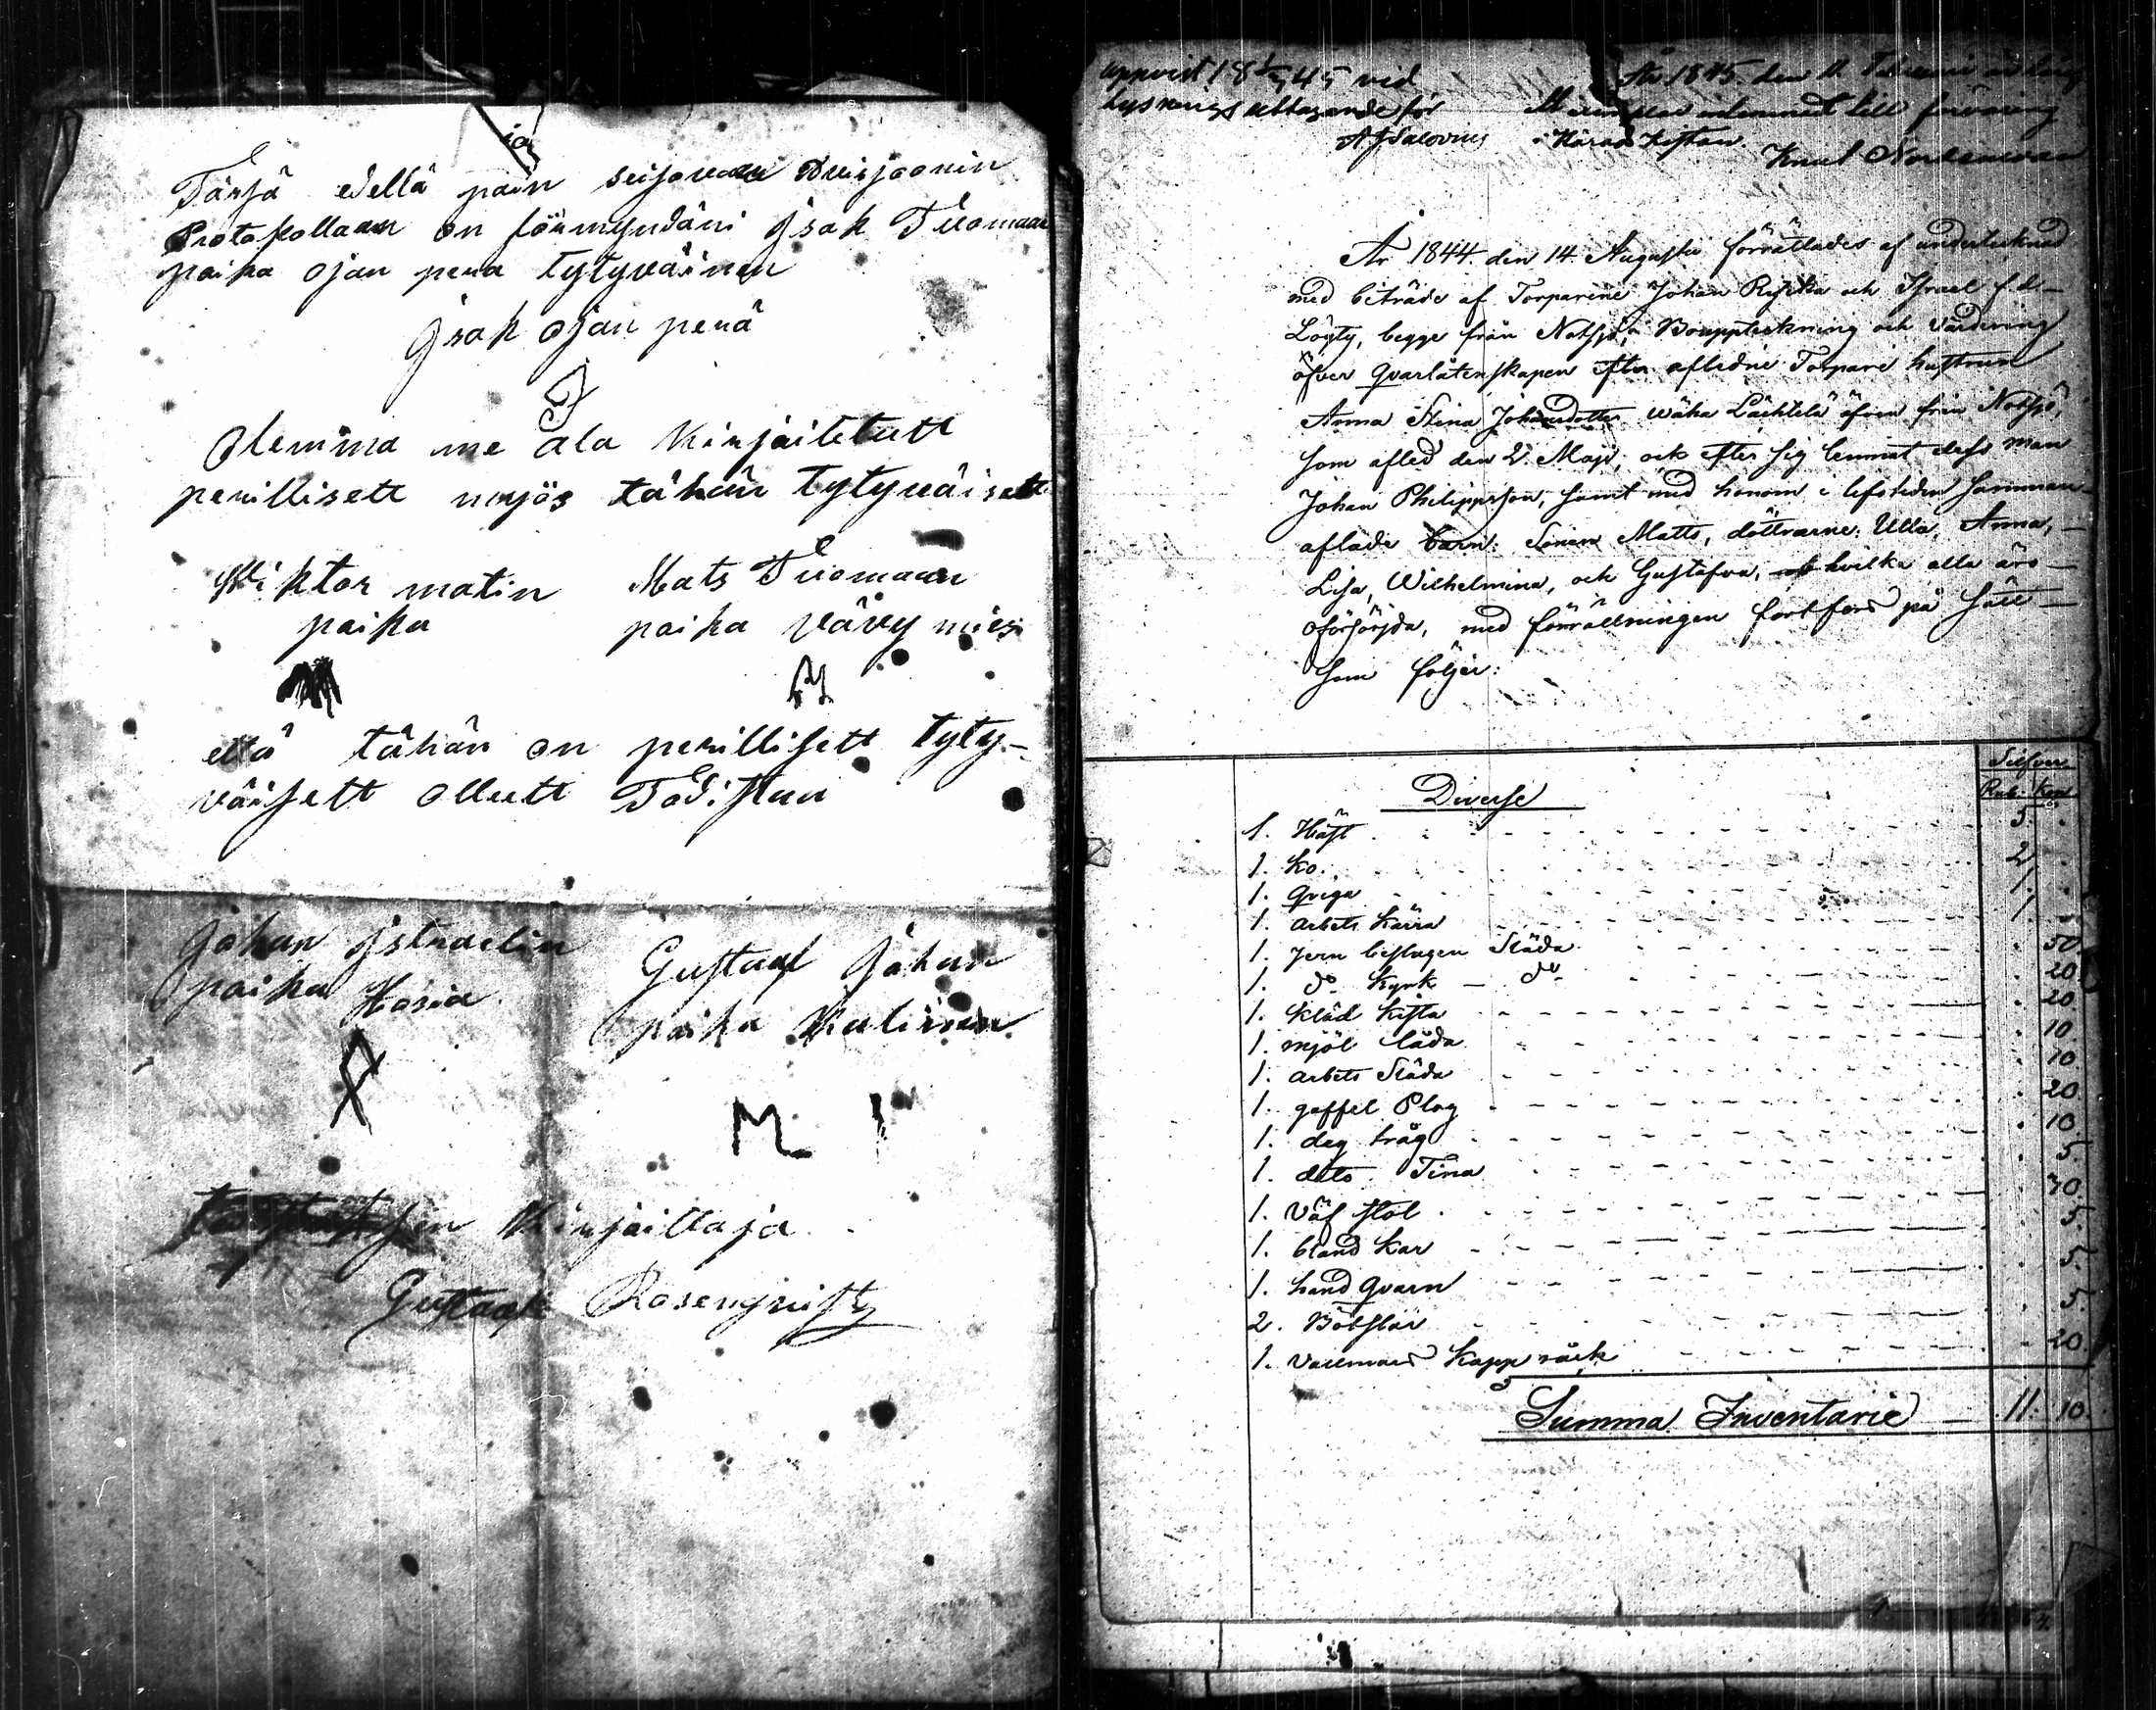 ja
Tässä edellä päin seisovaan Divisjoonin
Protokollaan on förmyndäri Isak Tuomaan
poika ojan perä tytyväinen
Isak ojan perä
Olemma me ala kirjoitetutt
perillisett myös tähän tytyväisett
Wiktor matin
poika
Mats Tuomaan
poika vävy mies
että tähän on perillisett tyty-
väisett ollutt Todistaa
Johan
poika Hosia
Gustaaf Johan
poika
M
Kirjoittaja
Gustaaf Rosengvist
uppvist 18 45 vid
lysnings uttagande för
År 1845 den 11
till förvaring
i Härads Kistan.
Knut
År 1844 den 14 Augusti förrättades af undertecknad
med biträde af Torparene Johan och Israel
begge från Natsjö, Bouppteckning och värdering
öfver Qvarlåtenskapen efter aflidne Torpare hustrun
Anna Stina Johansdotter Wäha Lächtelä äfven från Natsjö,
som afled den 2. Maji, och efter sig lemnat dess man
Johan Philippsson, samt med honom i lifstiden samman-
aflade barn: Sonen Matts, döttrarne: Ulla, Anna,
Lisa, Wilhelmina, och Gustafva, hvilka alla äro
oförsörjda, med förrättningen fortfors på sätt
som följer:
Silfver
Rub. Kop.
Diverse
1. Häst 5. .
1. Ko 2. .
1. Qviga 1. .
1. arbets kärra 1. .
1. jern beslagen Släda . 50
1. do kyrk do . 20
1. kläd kista . 20
1. mjöl låda . 10
1. arbets Släda . 10
1. gaffel Plog . 20
1. deg tråg . 10
1. dito Tina . 5.
1. Väf stol . 30
1. bland kar . 5.
1. hand qvarn . 5.
2. . 5.
1. Vallmars Kapp råck . 20
Summa Inventarie 11. 10.